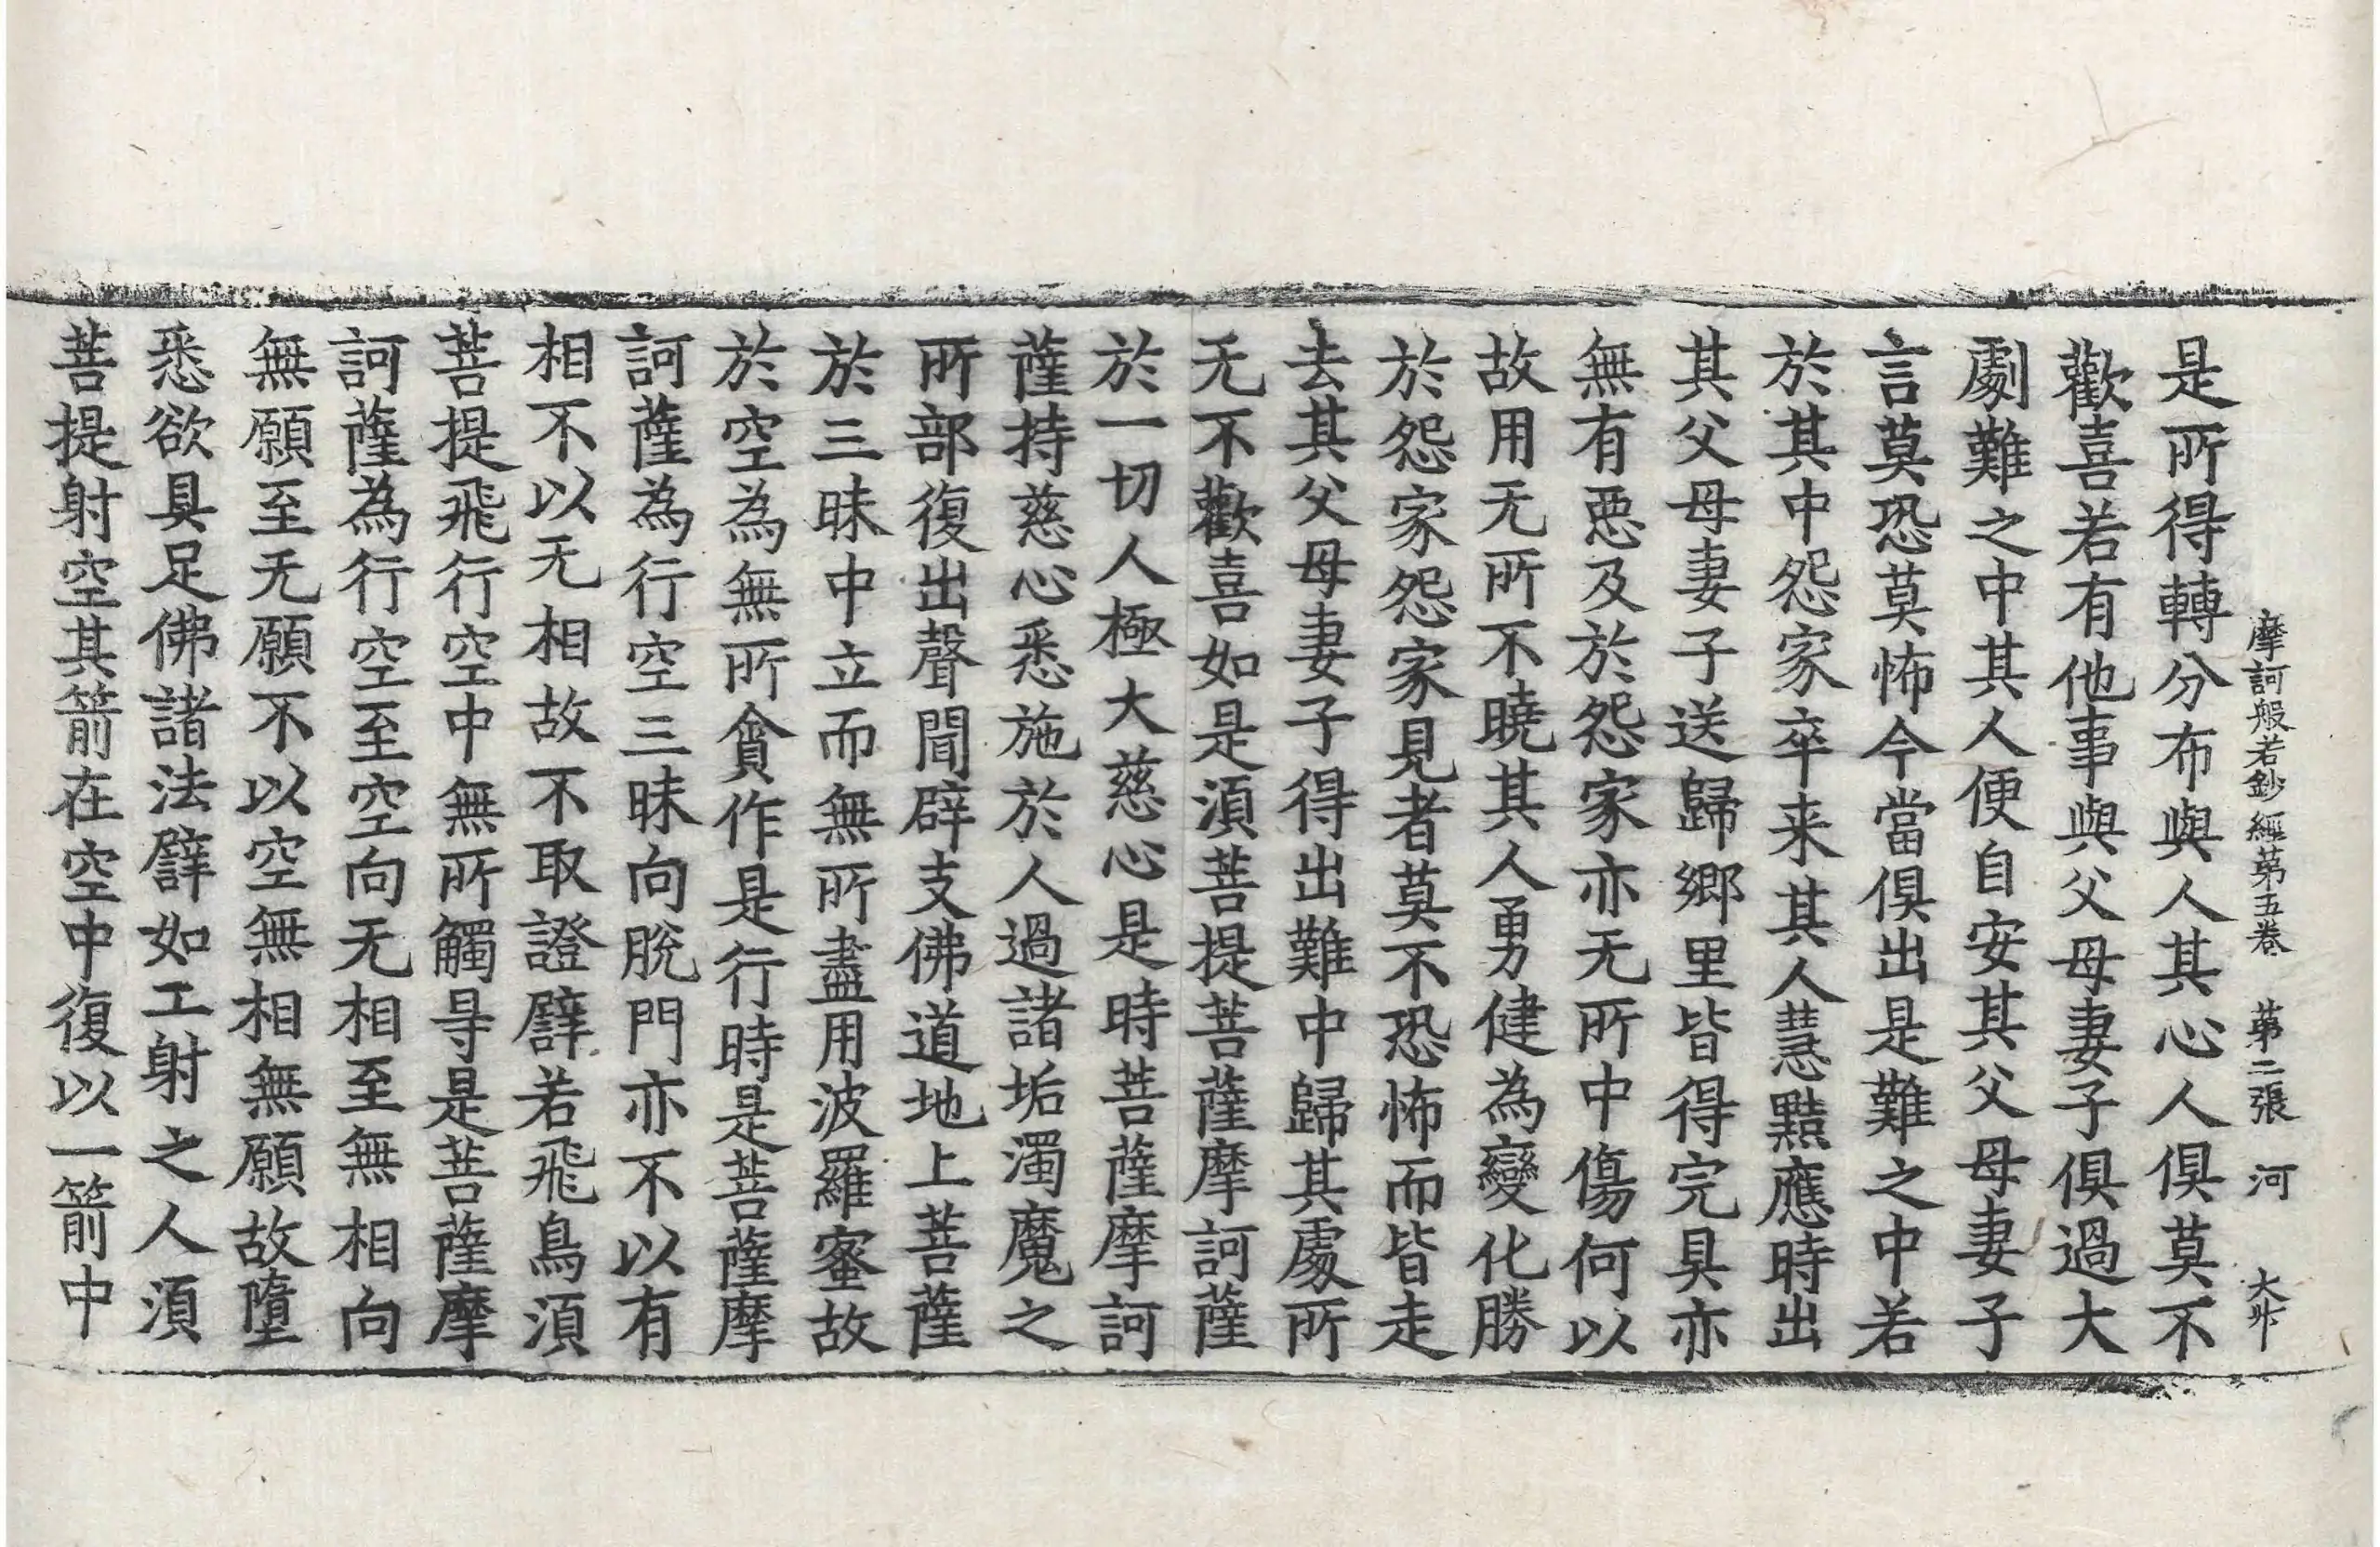 摩訶般若鈔經第五卷 第二張 河 大升
是所得轉分布與人其心人俱莫不
歡喜若有他事與父母妻子俱過大
劇難之中其人便自安其父母妻子
言莫恐莫怖今當俱出是難之中若
於其中怨家卒来其人慧黠應時出
其父母妻子送歸鄉里皆得完具亦
無有惡及於怨家亦无所中傷何以
故用无所不曉其人勇健為變化勝
於怨家怨家見者莫不恐怖而皆走
去其父母妻子得出難中歸其處所
无不歡喜如是須菩提菩薩摩訶薩
於一切人極大慈心是時菩薩摩訶
薩持慈心悉施於人過諸垢濁魔之
所部復出聲聞辟支佛道地上菩薩
於三昧中立而無所盡用波羅蜜故
於空為無所貪作是行時是菩薩摩
訶薩為行空三昧向脫門亦不以有
相不以无相故不取證譬若飛鳥須
菩提飛行空中無所觸㝵是菩薩摩
訶薩為行空至空向无相至無相向
無願至无願不以空無相無願故墮
悉欲具足佛諸法譬如工射之人須
菩提射空其箭在空中復以一箭中